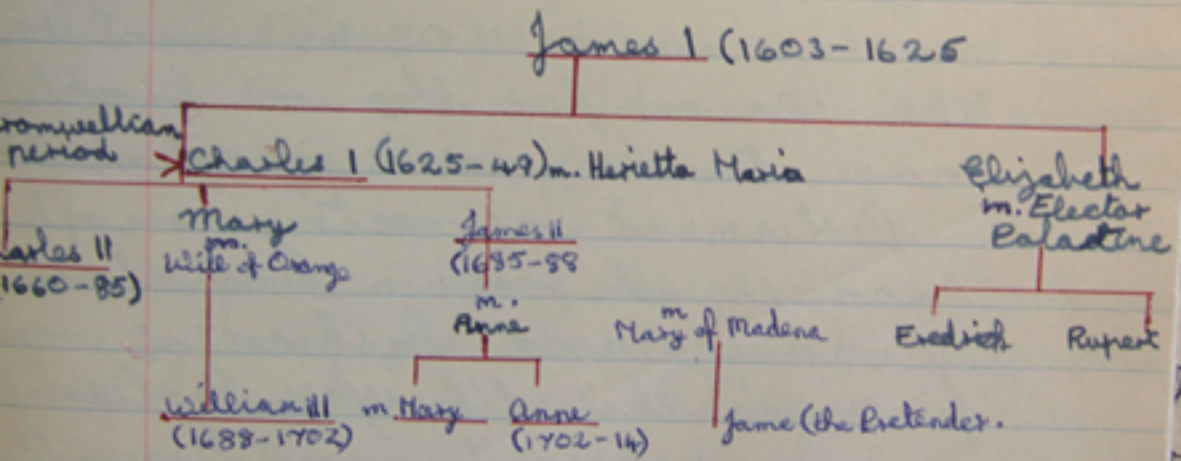 James I (1603-1625
romwellian
period
Charles I (1625-49) m. Herietta Maria
Elizabeth
m. Elector
Palastine
arles II
(1660-85)
Mary
m.
Will of Orange
James II
(1685-88
m.
Anne
m
Mary of Madena
Eredrich
Rupert
William III
(1688-1702)
m. Mary
Anne
(1702-14)
Jame (the Pretender.